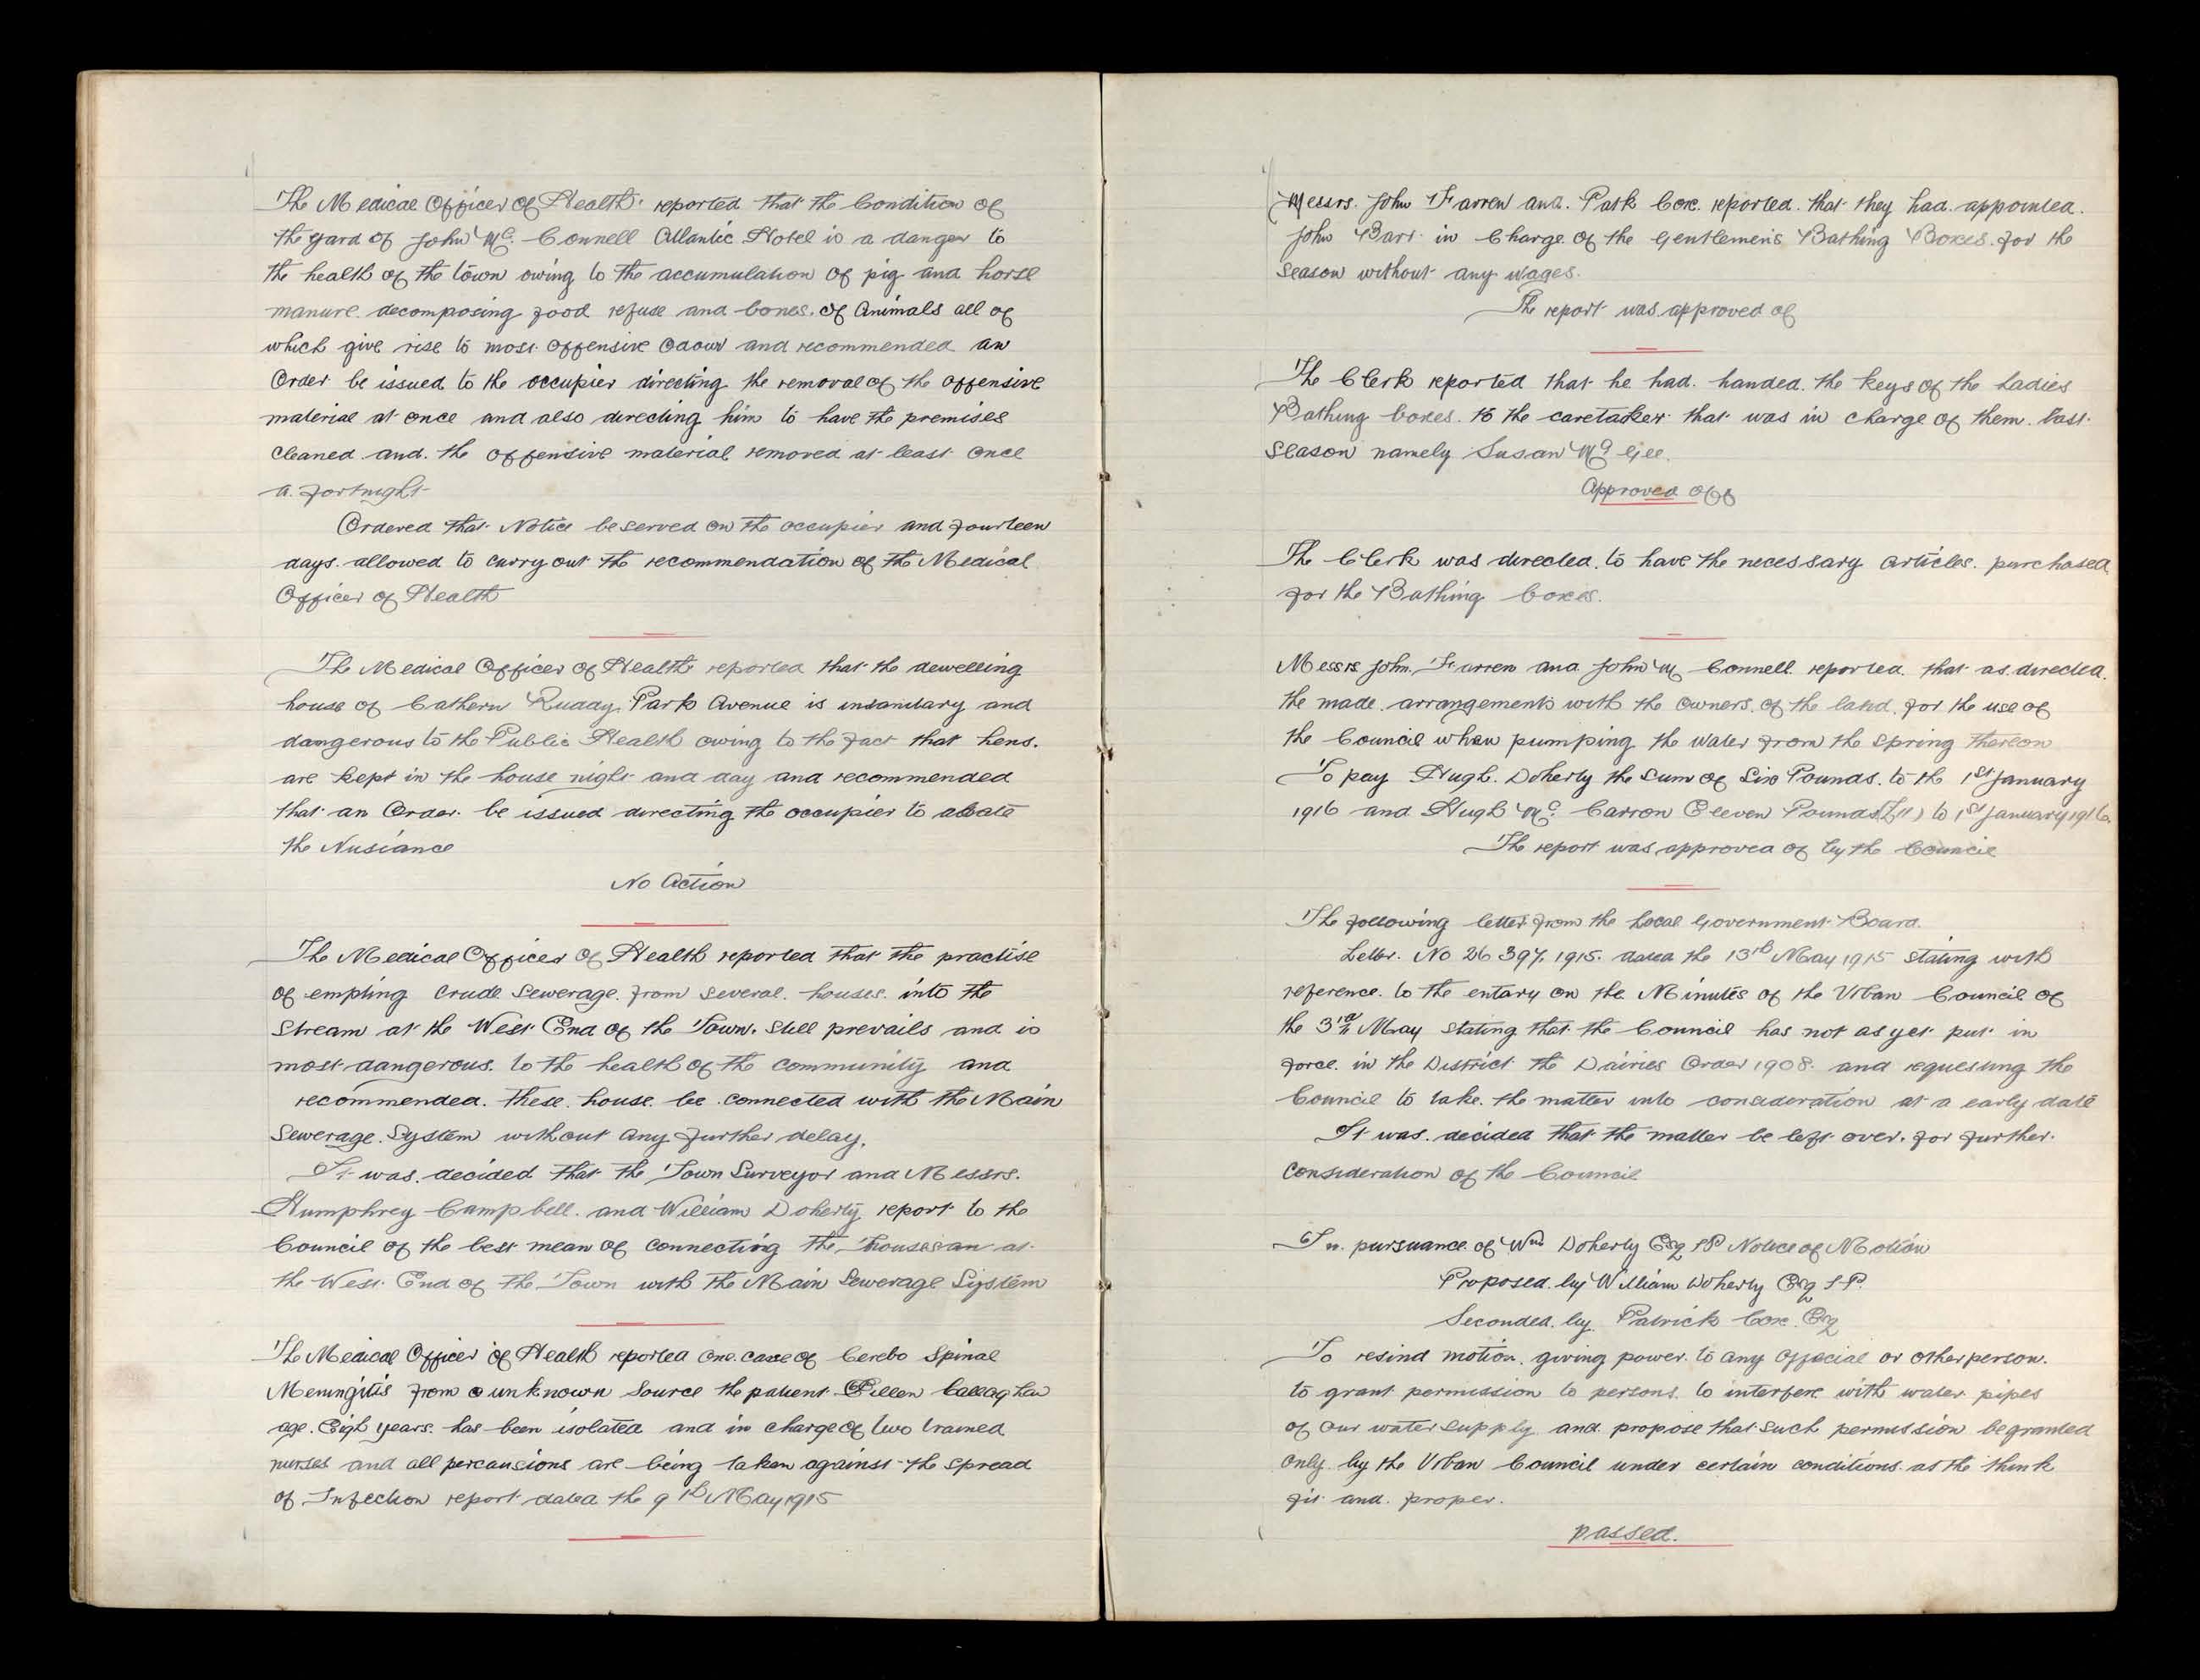 The Medical Officer of Health reported that the Condition of
the yard of John Mc Connell Atlantic Hotel is a danger to
the health of the town owing to the accumulation of pig and horse
manure decomposing food refuse and bones of Animals all of
which give rise to most offensive Odour and recommended an
Order be issued to the occupier directing the removal of the offensive
material at once and also directing him to have the premises
cleaned and the offensive material removed at least once
a fortnight
Ordered that Notice be served on the occupier and fourteen
days allowed to carry out the recommendation of the Medical
Officer of Health
The Medical Officer of Health reported that the dewelling
house of Cathern Ruddy Park Avenue is insanitary and
dangerous to the Public Health owing to the fact that hens
are kept in the house night and day and recommended
that an Order be issued directing the occupier to abate
the Nusiance
No Action
The Medical Officer of Health reported that the practise
of empting crude Sewerage from several houses into the
Stream at the West End of the Town still prevails and is
most dangerous to the health of the community and
recommended these house be connected with the Main
Sewerage System without any further delay.
It was decided that the Town Surveyor and Messrs.
Humphrey Campbell and William Doherty report to the
Council of the best mean of connecting the at
the West End of the Town with the Main Sewerage System
The Medical Officer of Health reported one case of Cerebo Spinal
Meningitis from a unknown Source the patient Ellen Callaghan
age Eigh years has been isolated and in charge of two trained
nurses and all percausions are being taken against the spread
of Infection report dated the 9th May 1915
Messrs. John Farren and Patk Coxe reported that they had appointed
John Barr in Charge of the Gentlemens Bathing Boxes for the
season without any wages.
The report was approved of
The Clerk reported that he had handed the keys of the Ladies
Bathing boxes to the caretaker that was in charge of them last
season namely Susan Mc Gee.
Approved off
The Clerk was directed to have the necessary articles purchased
for the Bathing boxes.
Messrs John Farren and John Mc Connell reported that as directed
the made arrangements with the Owners of the land for the use of
the Council when pumping the water from the spring thereon
To pay Hugh Doherty the sum of Six Pounds to the 1st January
1916 and Hugh Mc Carron Eleven Pounds (£11) to 1st January 1916.
The report was approved of by the Council
The following letter from the Local Government Board.
Letter No 26397, 1915 dated the 13th May 1915 stating with
reference to the entary on the Minutes of the Urban Council of
the 3rd May stating that the Council has not as yet put in
force in the District the Dairies Order 1908 and requesting the
Council to take the matter into consideration at a early date
It was decided that the matter be left over for further
consideration of the Council
In pursuance of Wm Doherty Esq J P Notice of Motion
Proposed by William Doherty Esq J P.
Seconded by Patrick Coxe Esq
To resind motion giving power to any Official or other person
to grant permission to persons to interfere with water pipes
of our water supply and propose that such permission be granted
only by the Urban Council under certain conditions as the think
fit and proper.
passed.